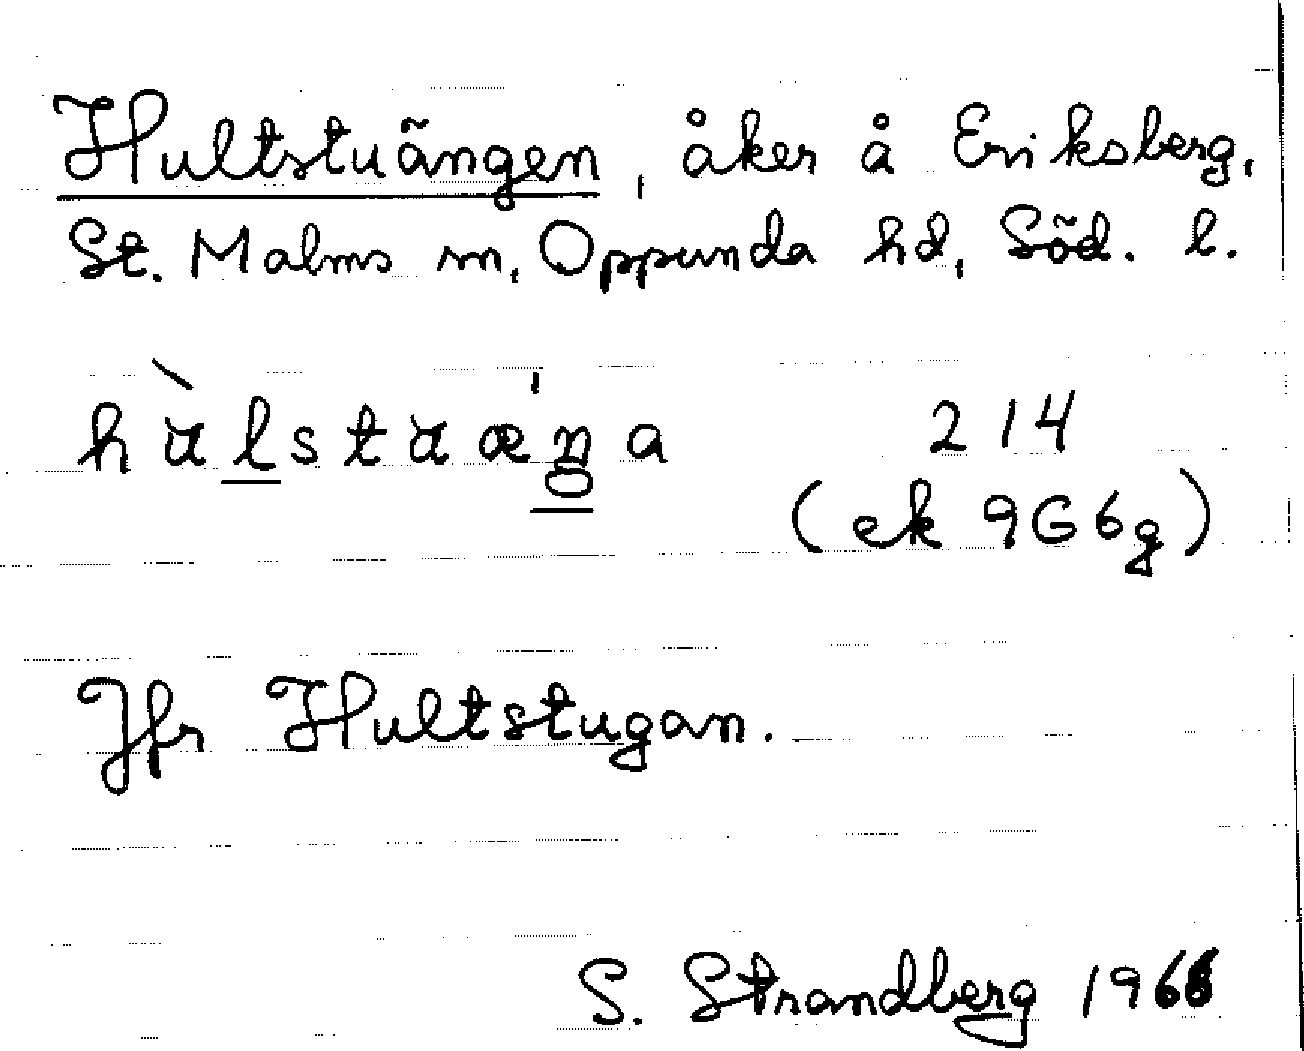 Hultstuängen, åker å Eriksberg,
St. Malms sn, Oppunda hd, Söd. l.
hùlstuæŋa 214
(ek 9G6g)
Jfr Hultstugan.
S. Strandberg 1966